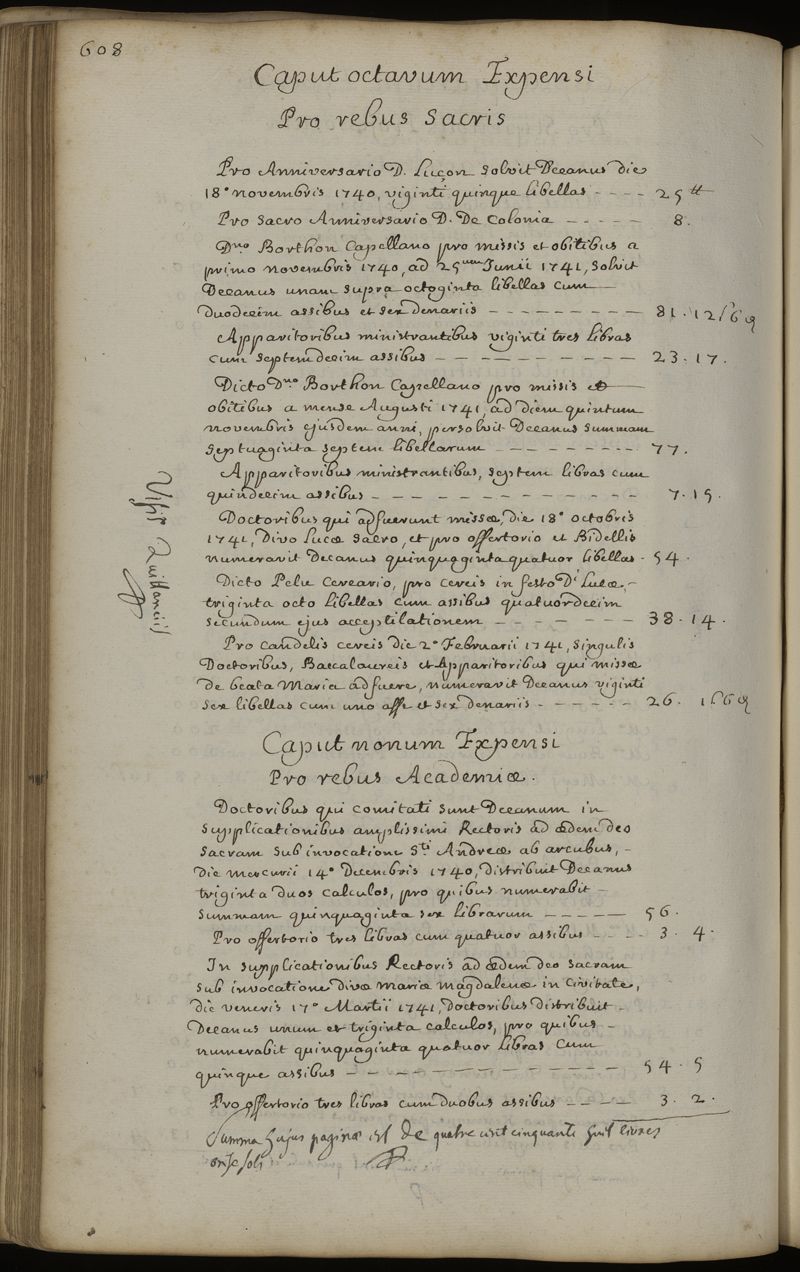 608
Caput octavum Expensi
Pro rebus Sacris
Pro Anniversario D. Luçon solvit Decanus die
18° novembris 1740, viginti quinque libellas - - - - 25 ᵗᵗ
Pro sacro Anniversario D. De Colonia - - - - - 8.
Dno Borthon Capellano pro missis et obitibus a
primo novembris 1740, ad 25um Junii 1741, solvit
Decanus unam supra octoginta libellas cum
duodecim assibus et sex denariis - - - - - - - - - 81 . 12 ſ 6 ₰
Apparitoribus ministrantibus viginti tres libras
cum septemdecim assibus - - - - - - - - - 23 . 17 .
Dicto Dno Borthon Capellano pro missis et
obitibus a mense Augusti 1741, ad diem quintum
novembris ejusdem anni, persolvit Decanus summam
septuaginta septem libellarum - - - - - - - - 77 .
Apparitoribus ministrantibus, septem libras cum
quindecim assibus - - - - - - - - - - - - - 7 . 15 .
Doctoribus qui adfuerunt missæ, die 18° octobris
1741, Divo Lucæ sacro, et pro offertorio et Bidellis
numeravit Decanus quinquaginta quatuor libellas - 54 .
Dicto Pelu Cereario, pro cereis in festo Di Lucæ, -
triginta octo libellas cum assibus quatuordecim
secundum ejus acceptilationem - - - - - - - 38 . 14 .
Pro candelis cereis die 2° Februarii 1741, singulis
Doctoribus, Baccalaureis et Apparitoribus qui missæ
de beata Maria adfuere, numeravit Decanus viginti
sex libellas cum uno asse et sex denariis - - - - - - 26 . 1 ſ 6 ₰
Caput nonum Expensi
Pro rebus Academiæ .
Doctoribus qui comitati sunt Decanum in
supplicationibus amplissimi Rectoris ad ædem deo
sacram sub invocatione Sti Andreæ ab arcubus, -
die mercurii 14° Decembris 1740, distribuit Decanus
triginta duos calculos, pro quibus numerabit -
summam quinquaginta sex librarum - - - - - 56 .
Pro offertorio tres libras cum quatuor assibus - - - - 3 . 4 .
In supplicationibus Rectoris ad ædem deo sacram
sub invocatione divæ mariæ magdalenæ in Civitate,
die veneris 17° Martii 1741, doctoribus distribuit
Decanus unum et triginta calculos, pro quibus -
numerabit quinquaginta quatuor libras cum
quinque assibus - - - - - - - - - - - 54 . 5
Pro offertorio tres libras cum duobus assibus - - - - 3 . 2 .
Summa hujus paginæ est de quatre cent cinquante huit livres
onze sols